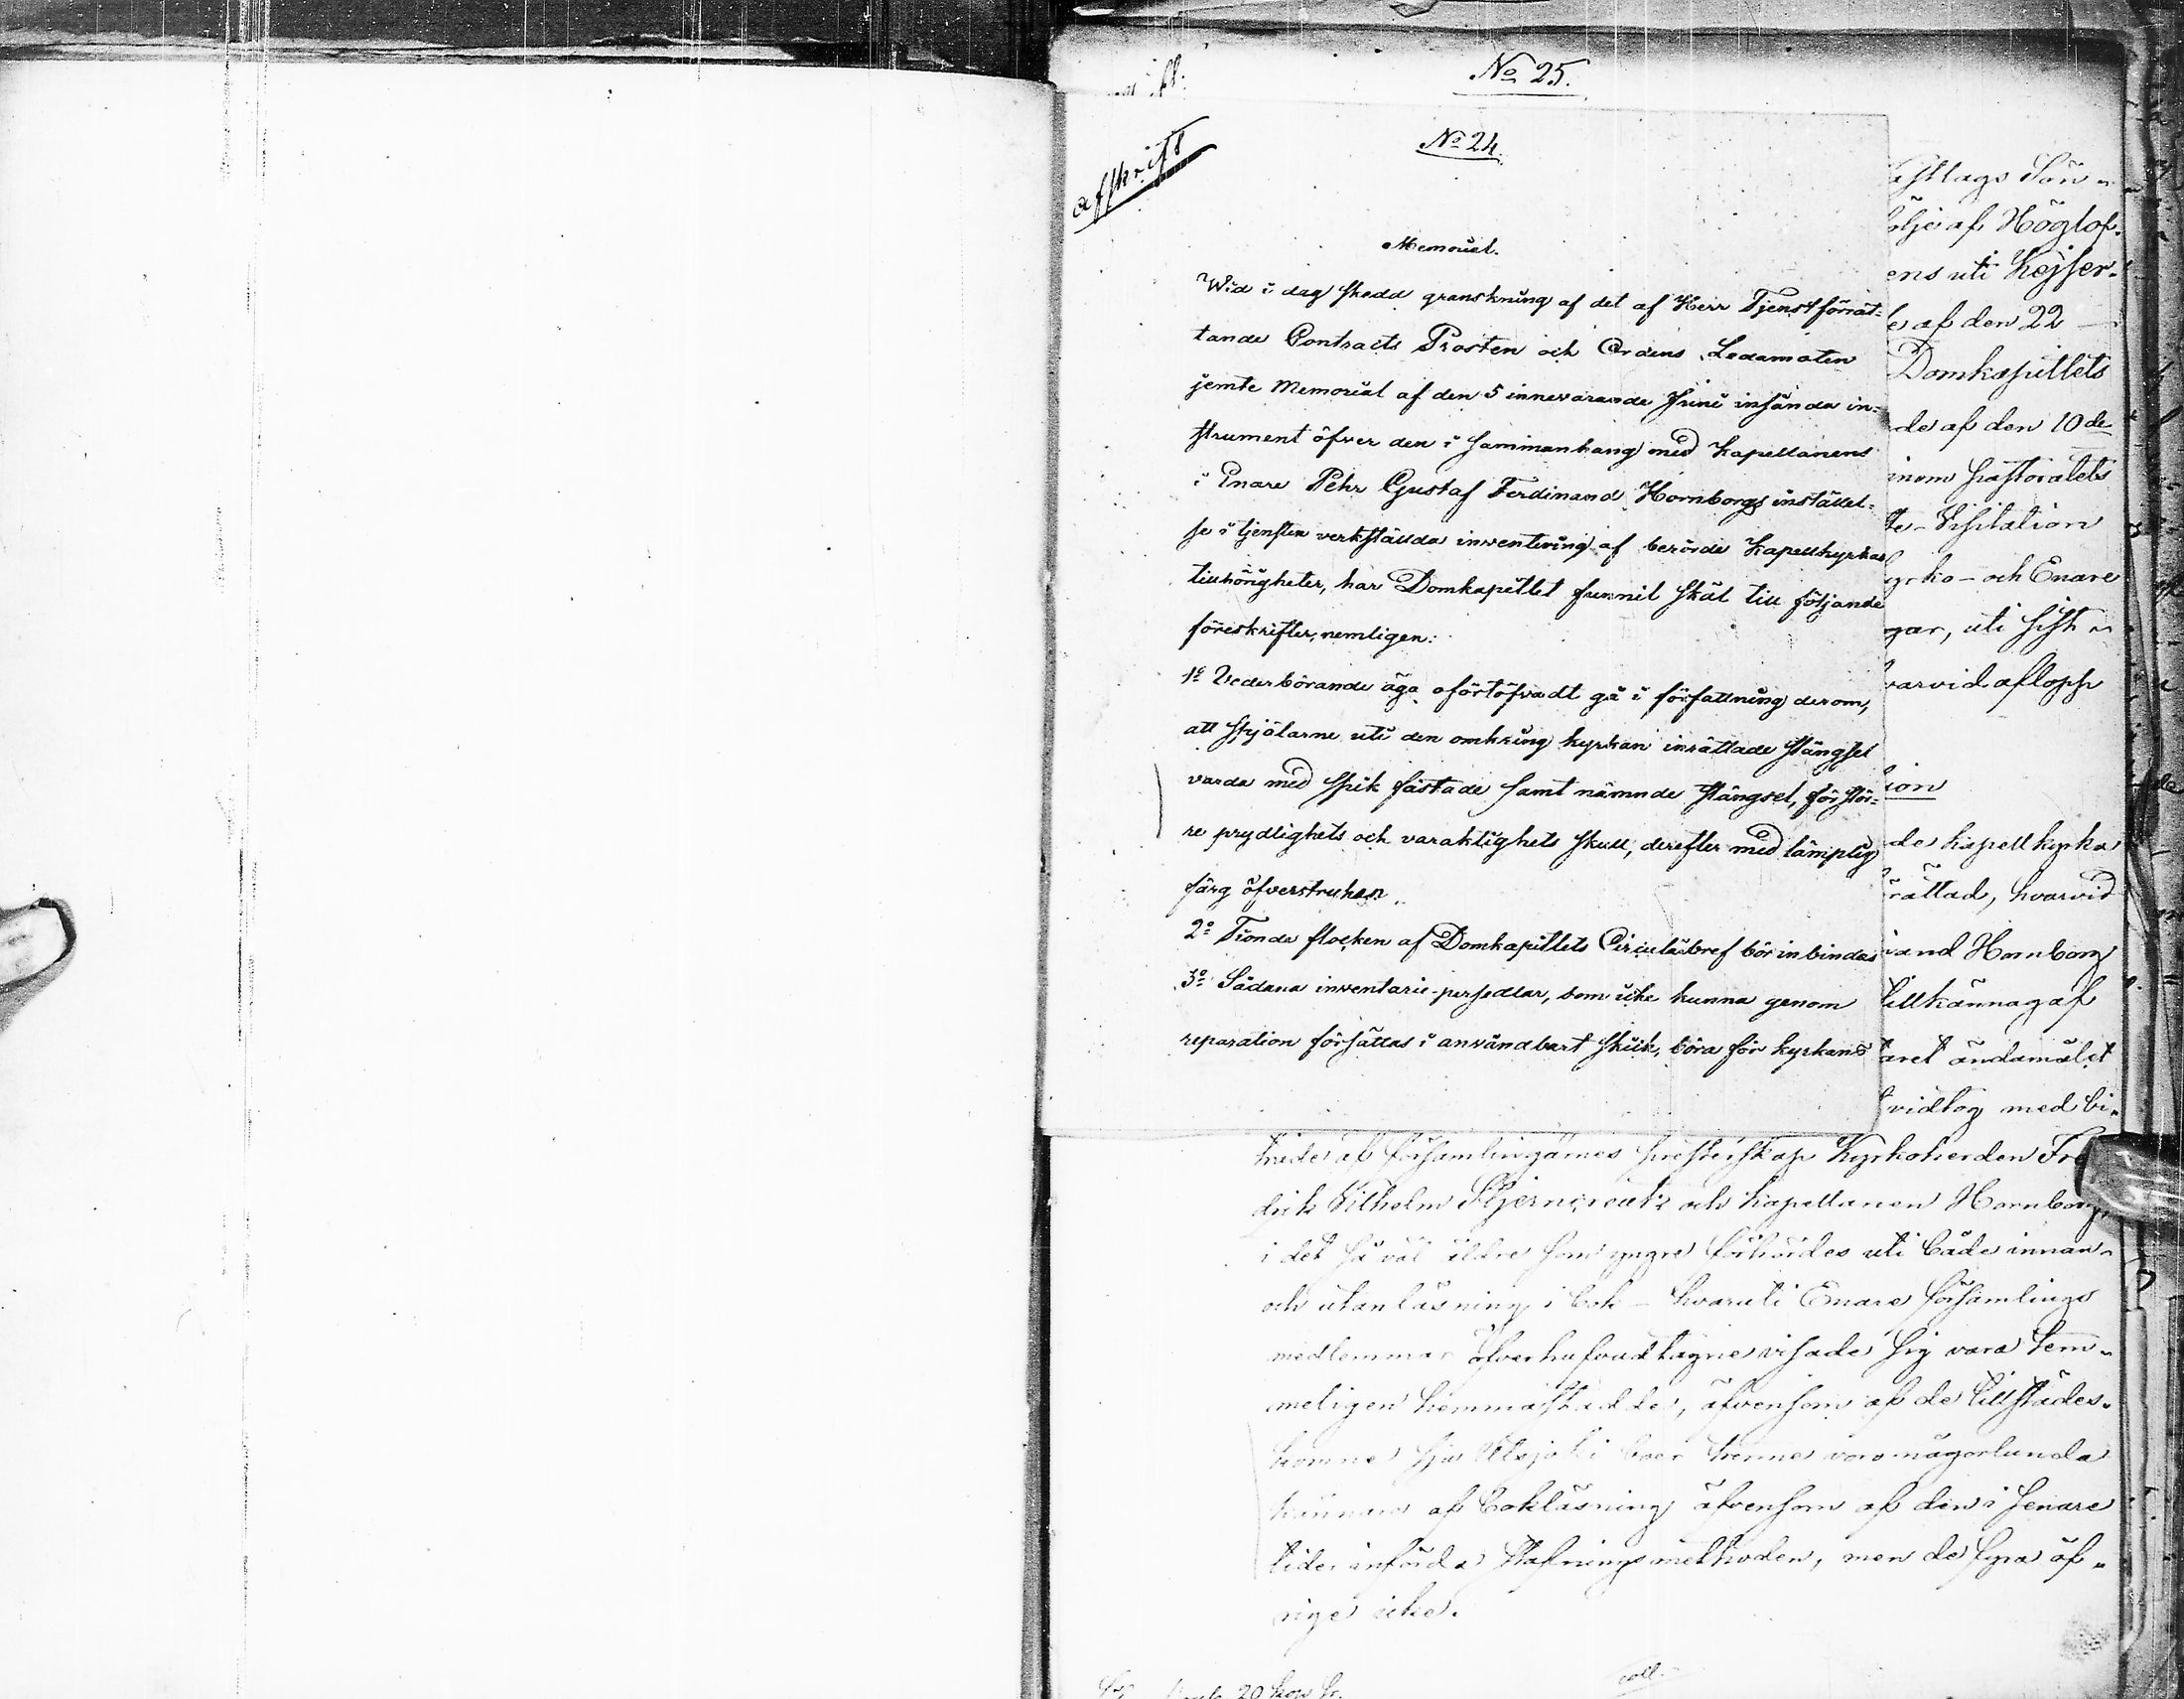 No 25.
No 24.
afskrift
Memorial.
Wid i dag skedd granskning af det af Herr Tjenstförrät-
tande Contracts Prosten och Ordens Ledamoten
jemte Memorial af den 5 innevarande Juni insända in-
strument öfver den i sammanhang med Kapellanens
i Enare Pehr Gustaf Ferdinand Hornborgs inställel-
se i tjensten verkställda inventering af berörde Kapellkyrkas
tillhörigheter, har Domkapitlet funnit skäl till följande
föreskrifter, nemligen:
1o Vederbörande äga oförtöfvadt gå i författning derom,
att spjälarne uti den omkring kyrkan inrättade stängsel
varda med spik fästade samt nämnde stängsel, för stör-
re prydlighets och varaktighets skull, derefter med lämplig
färg öfverstruken.
2o Tionde flocken af Domkapitlets Circulärbref bör inbindas
3o Sådana inventarie-persedlar, som icke kunna genom
reparation försättas i användbart skick, böra för kyrkans
astlags Sön-
följe af Höglof-
ens uti Kejser-
af den 22
Domkapitlets
de af den 10de
inom pastoratets
te-Visitation
yrko- och Enare
gar, uti sist
varvid aflopp
ion
de kapellkyrka
rättad, hvarvid
nand Hornborg
tillkännagaf
aret ändamålet
vidtog med bi-
träde af församlingarnes presterskap Kyrkoherden Fre
drik Vilhelm Stjerncreutz och kapellanen Hornborg,
i det så väl äldre som yngre förhördes uti både innan-
och utanläsning i bok - hvaruti Enare församlings
medlemmar öfverhufvudtagne visade sig vara tem-
meligen hemmastadde, äfvensom af de tillstädes-
komne sju Utsjoki boer trenne voro någorlunda
kännare af bokläsning äfvensom af den i senare
tider införda stafningsmethoden, men de fyra öf-
rige icke.
20 kop
coll.